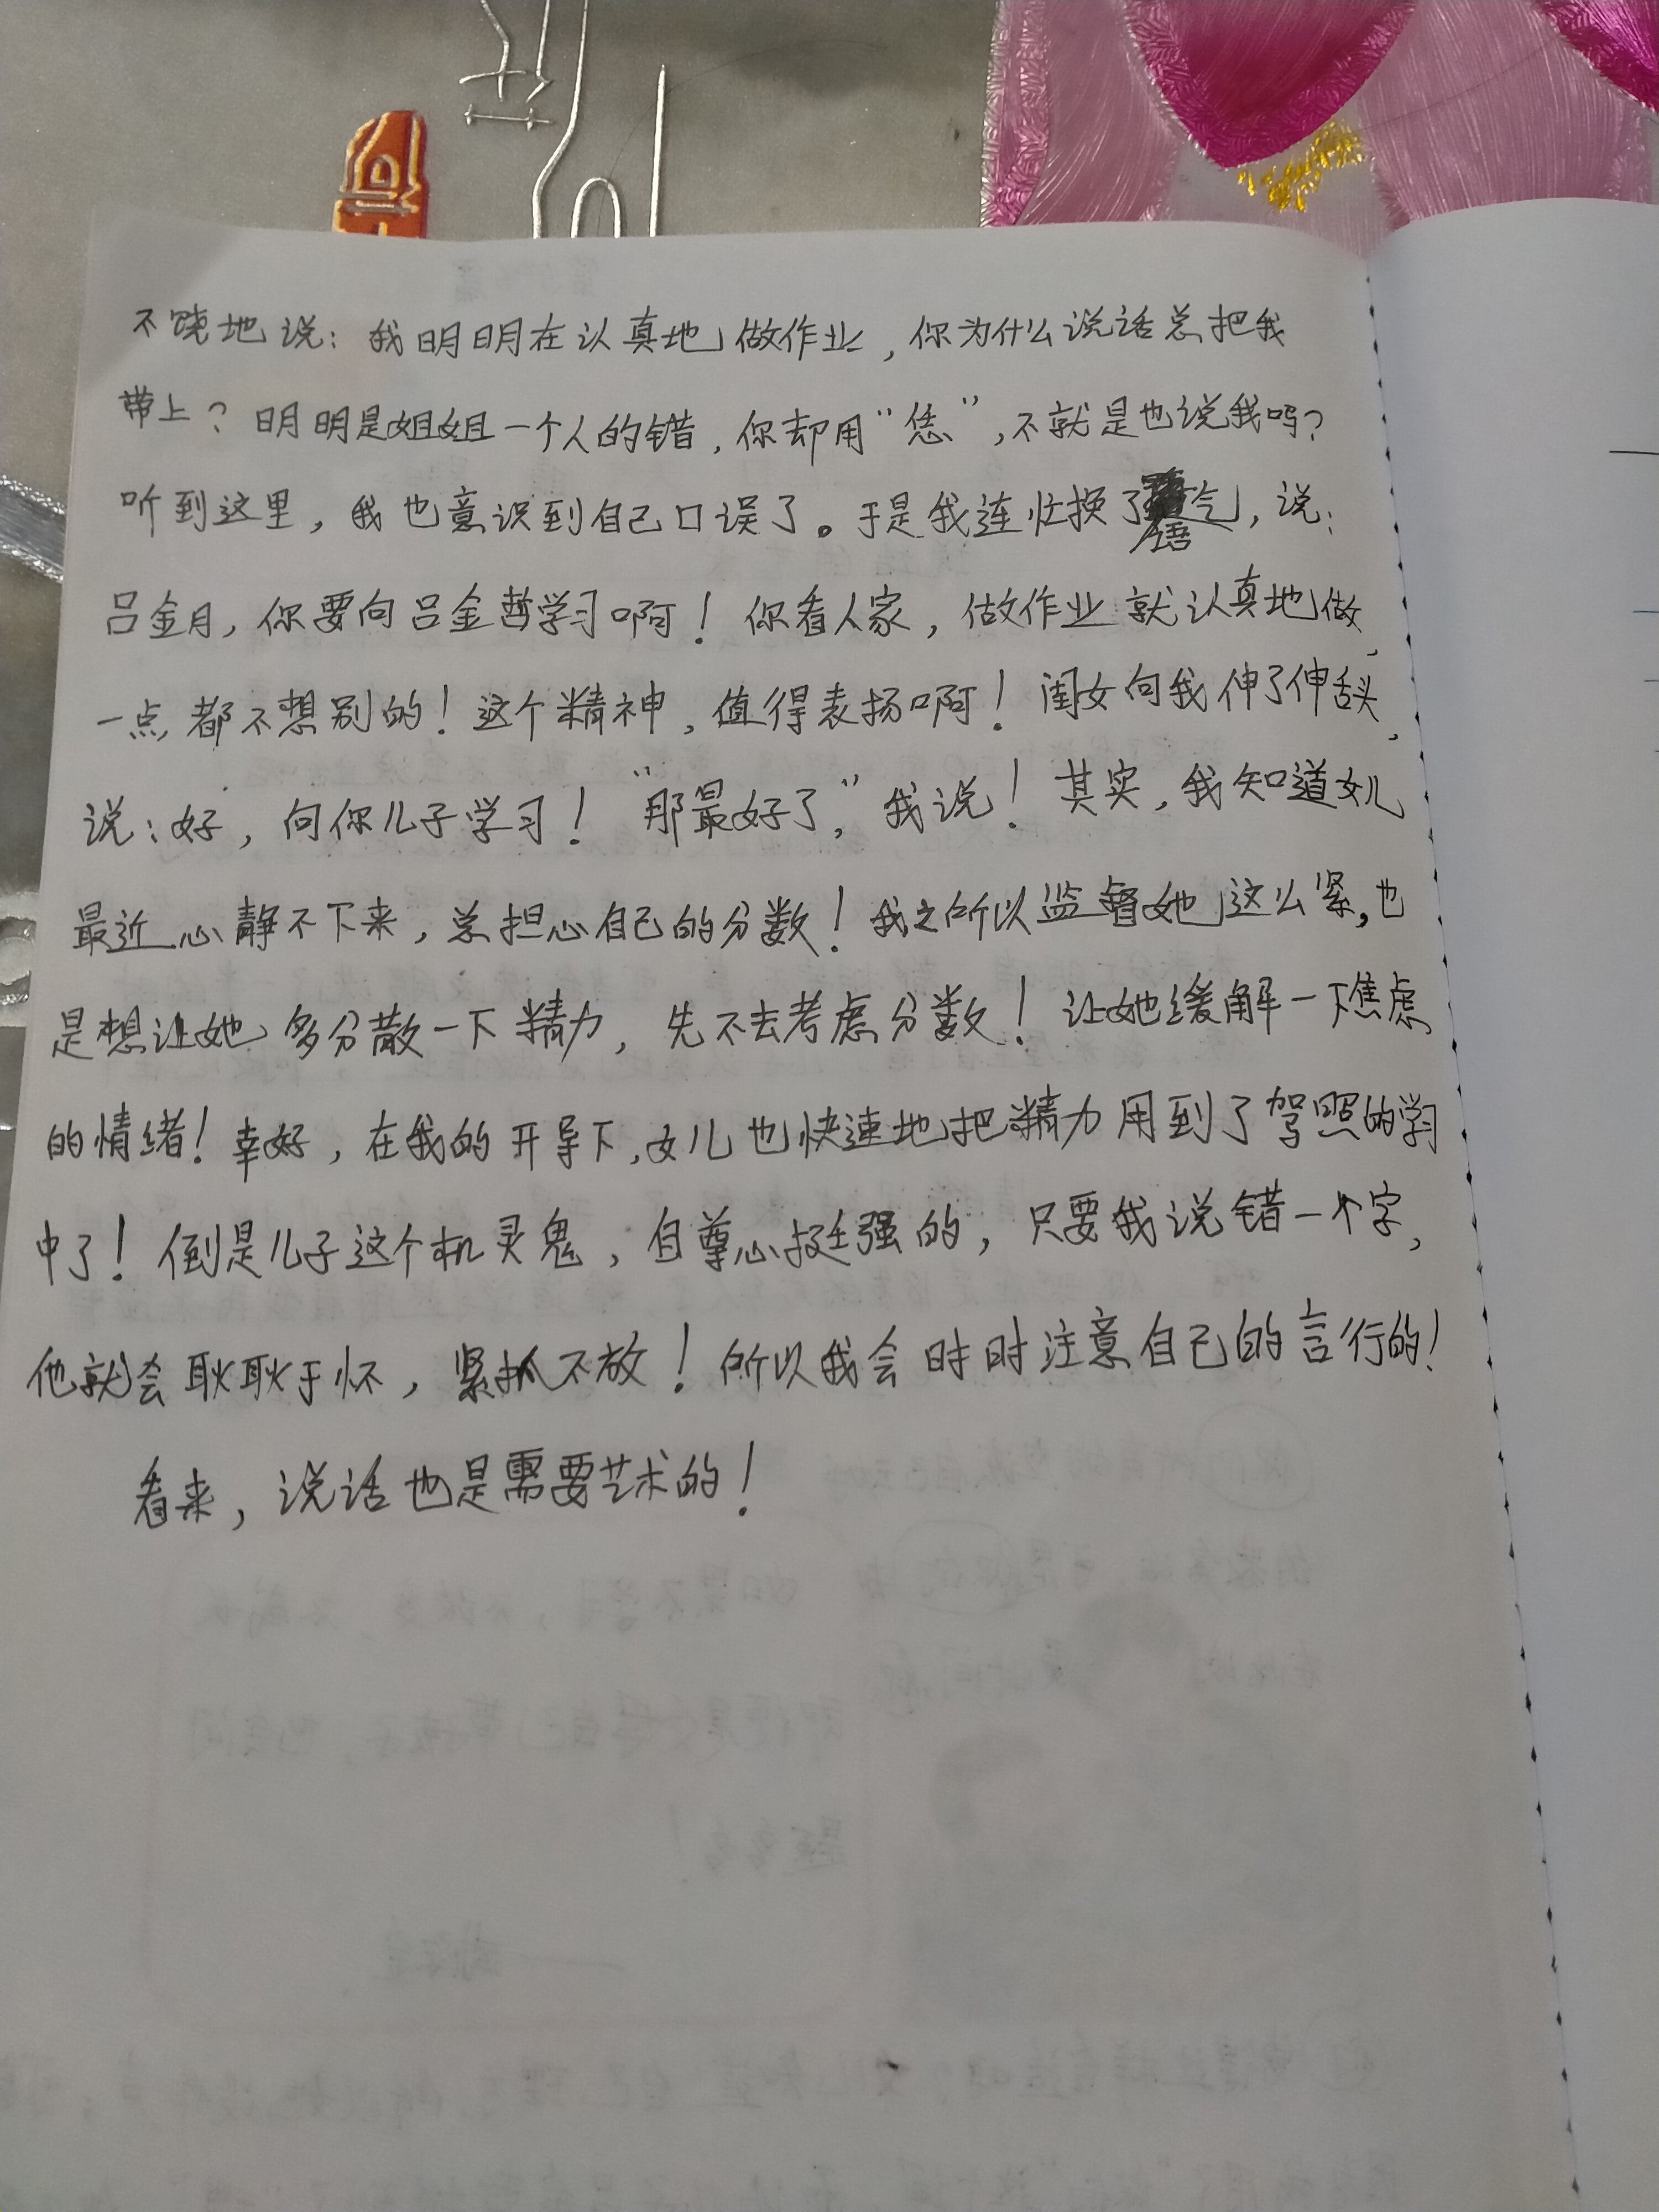 不饶地说：我明明在认真地做作业，你为什么说话总把我
带上？明明是姐姐一个人的错，你却用“恁”，不就是也说我吗？
听到这里，我也意识到自己口误了。于是我连忙换了语气，说：
吕金月，你要向吕金哲学习啊！你看人家，做作业就认真地做，
一点都不想别的！这个精神，值得表扬啊！闺女向我伸了伸舌头，
说：好，向你儿子学习！“那最好了，”我说！其实，我知道女儿
最近心静不下来，总担心自己的分数！我之所以监督她这么紧，也
是想让她多分散一下精力，先不去考虑分数！让她缓解一下焦虑
的情绪！幸好，在我的开导下，女儿也快速地把精力用到了驾照的学习
中了！倒是儿子这个机灵鬼，自尊心挺强的，只要我说错一个字，
他就会耿耿于怀，紧抓不放！所以我会时时注意自己的言行的！
看来，说话也是需要艺术的！